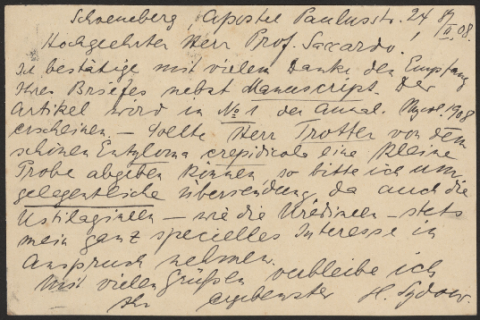 Schoeneberg, Apostel Paulusstr. 24 19/II.08.
Hochgeehrter Herr Prof. Saccardo!
Ich bestätige mit vielem Danke den Empfang
Ihres Briefes nebst Manuscript. Der
Artikel wird in No 1 der Annal. Mycol. 1908
erscheinen. — Sollte Herr Trotter von dem
schönen Entyloma crepidicola eine kleine
Probe abgeben können so bitte ich um
gelegentliche Übersendung, da auch die
Ustilagineen — wie die Uredineen — stets
mein ganz specielles Interesse in
Anspruch nehmen.
Mit vielen Grüßen verbleibe ich
Ihr ergebenster H. Sydow.